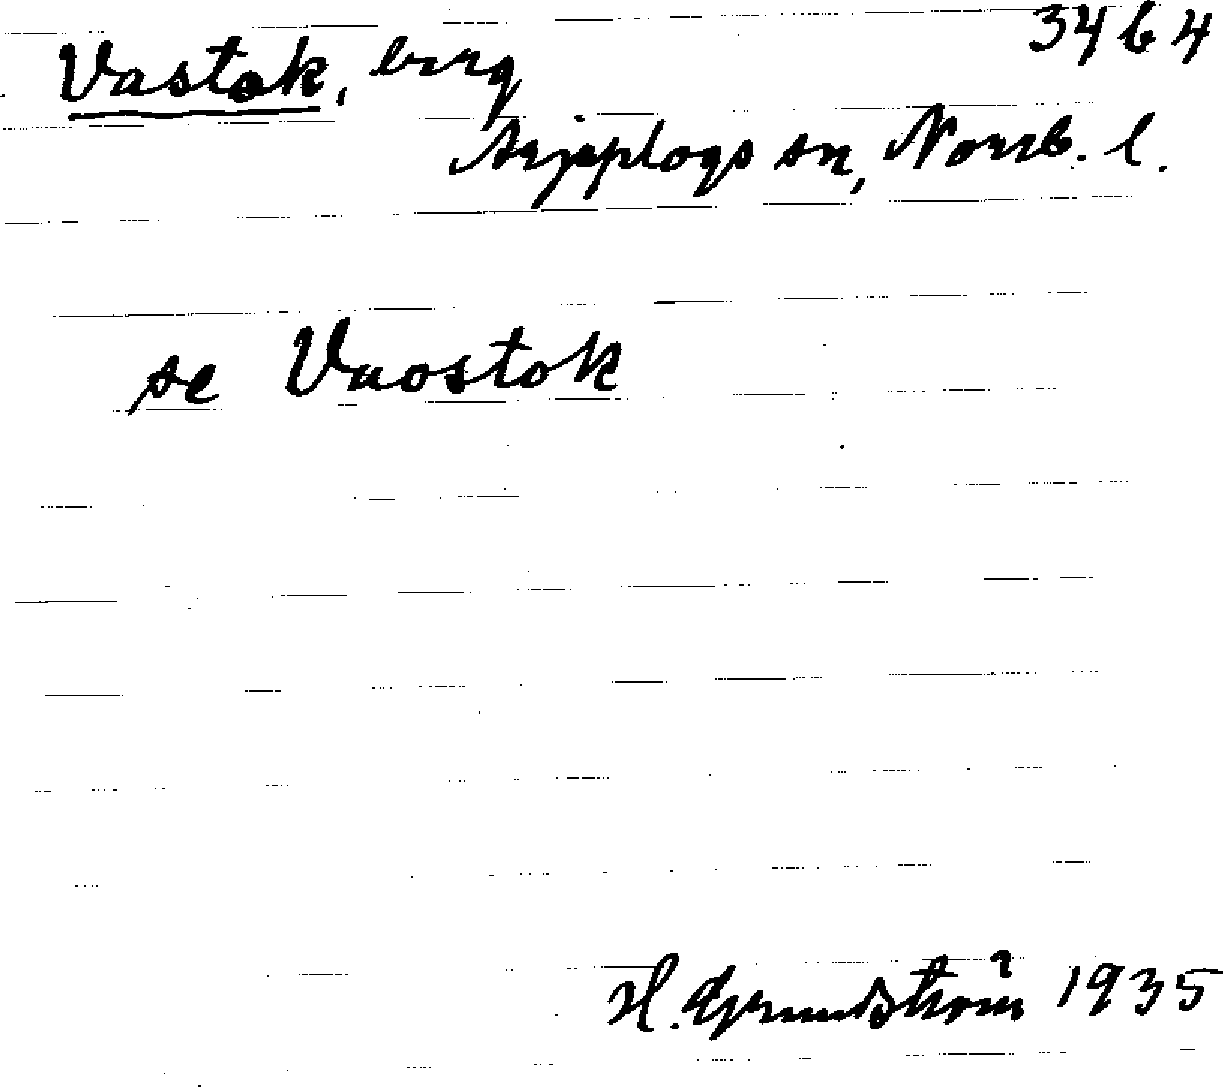 3464
Vastok, berg
Arjeplogs sn, Norrb. l.
se Vuostok
H. Grundström 1935